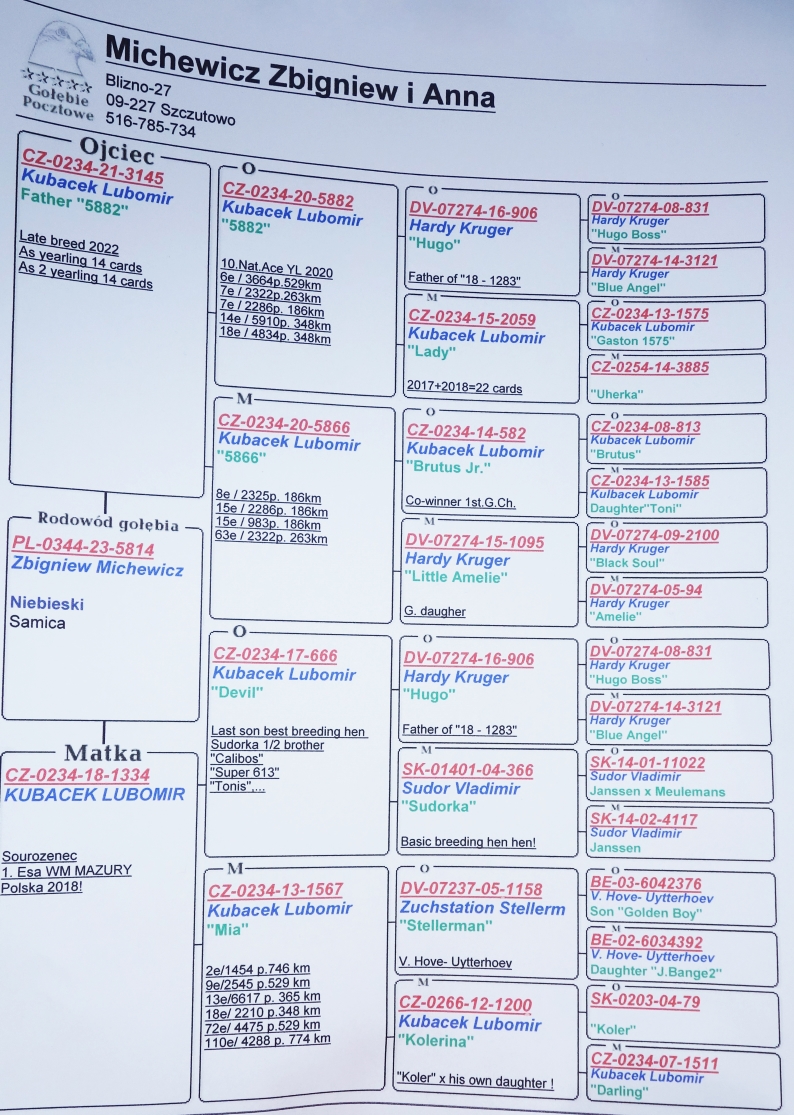 Michewicz Zbigniew i Anna
Gołębie
Pocztowe
Blizno-27
09-227 Szczutowo
516-785-734
Ojciec
CZ-0234-21-3145
Kubacek Lubomir
Father "5882"
Late breed 2022
As yearling 14 cards
As 2 yearling 14 cards
Rodowód gołębia
PL-0344-23-5814
Zbigniew Michewicz
Niebieski
Samica
Matka
CZ-0234-18-1334
KUBACEK LUBOMIR
Sourozenec
1. Esa WM MAZURY
Polska 2018!
O
CZ-0234-20-5882
Kubacek Lubomir
"5882"
10.Nat.Ace YL 2020
6e / 3664p.529km
7e / 2322p.263km
7e / 2286p. 186km
14e / 5910p. 348km
18e / 4834p. 348km
M
CZ-0234-20-5866
Kubacek Lubomir
"5866"
8e / 2325p. 186km
15e / 2286p. 186km
15e / 983p. 186km
63e / 2322p. 263km
O
CZ-0234-17-666
Kubacek Lubomir
"Devil"
Last son best breeding hen
Sudorka 1/2 brother
"Calibos"
"Super 613"
"Tonis",...
M
CZ-0234-13-1567
Kubacek Lubomir
"Mia"
2e/1454 p.746 km
9e/2545 p.529 km
13e/6617 p. 365 km
18e/ 2210 p.348 km
72e/ 4475 p.529 km
110e/ 4288 p. 774 km
O
DV-07274-16-906
Hardy Kruger
"Hugo"
Father of "18 - 1283"
M
CZ-0234-15-2059
Kubacek Lubomir
"Lady"
2017+2018=22 cards
O
CZ-0234-14-582
Kubacek Lubomir
"Brutus Jr."
Co-winner 1st.G.Ch.
M
DV-07274-15-1095
Hardy Kruger
"Little Amelie"
G. daugher
O
DV-07274-16-906
Hardy Kruger
"Hugo"
Father of "18 - 1283"
M
SK-01401-04-366
Sudor Vladimir
"Sudorka"
Basic breeding hen hen!
O
DV-07237-05-1158
Zuchstation Stellerm
"Stellerman"
V. Hove- Uytterhoev
M
CZ-0266-12-1200
Kubacek Lubomir
"Kolerina"
"Koler" x his own daughter !
O
DV-07274-08-831
Hardy Kruger
"Hugo Boss"
M
DV-07274-14-3121
Hardy Kruger
"Blue Angel"
O
CZ-0234-13-1575
Kubacek Lubomir
"Gaston 1575"
M
CZ-0254-14-3885
"Uherka"
O
CZ-0234-08-813
Kubacek Lubomir
"Brutus"
M
CZ-0234-13-1585
Kulbacek Lubomir
Daughter"Toni"
O
DV-07274-09-2100
Hardy Kruger
"Black Soul"
M
DV-07274-05-94
Hardy Kruger
"Amelie"
O
DV-07274-08-831
Hardy Kruger
"Hugo Boss"
M
DV-07274-14-3121
Hardy Kruger
"Blue Angel"
O
SK-14-01-11022
Sudor Vladimir
Janssen x Meulemans
M
SK-14-02-4117
Sudor Vladimir
Janssen
O
BE-03-6042376
V. Hove- Uytterhoev
Son "Golden Boy"
M
BE-02-6034392
V. Hove- Uytterhoev
Daughter "J.Bange2"
O
SK-0203-04-79
"Koler"
M
CZ-0234-07-1511
Kubacek Lubomir
"Darling"